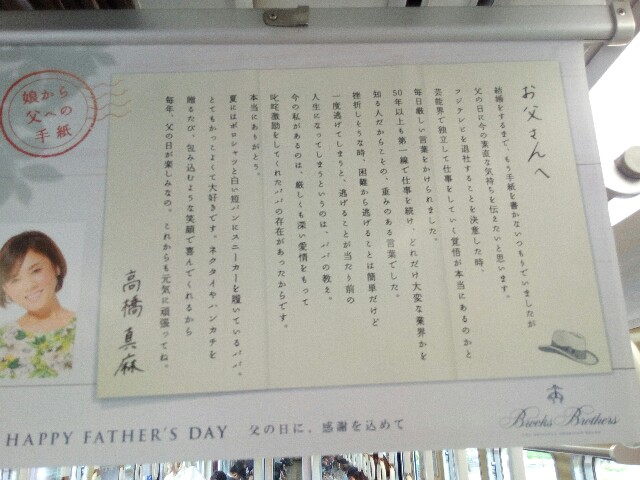 娘から
父への
手紙
お父さんへ
結婚をするまで、もう手紙を書かないつもりでいましたが
父の日に今の素直な気持ちを伝えたいと思います。
フジテレビを退社することを決意した時、
芸能界で独立して仕事をしていく覚悟が本当にあるのかと
毎日厳しい言葉をかけられました。
50年以上も第一線で仕事を続け、どれだけ大変な業界かを
知る人だからこその、重みのある言葉でした。
挫折しそうな時、困難から逃げることは簡単だけど
一度逃げてしまうと、逃げることが当たり前の
人生になってしまうというのは、パパの教え。
今の私があるのは、厳しくも深い愛情をもって
叱咤激励をしてくれたパパの存在があったからです。
本当にありがとう。
夏にはポロシャツと白い短パンにスニーカーを履いているパパ。
とてもかっこよくて大好きです。ネクタイやハンカチを
贈るたび、包み込むような笑顔で喜んでくれるから
毎年、父の日が楽しみなの。これからも元気に頑張ってね。
高橋 真麻
Brooks Brothers
HAPPY FATHER'S DAY 父の日に、感謝を込めて